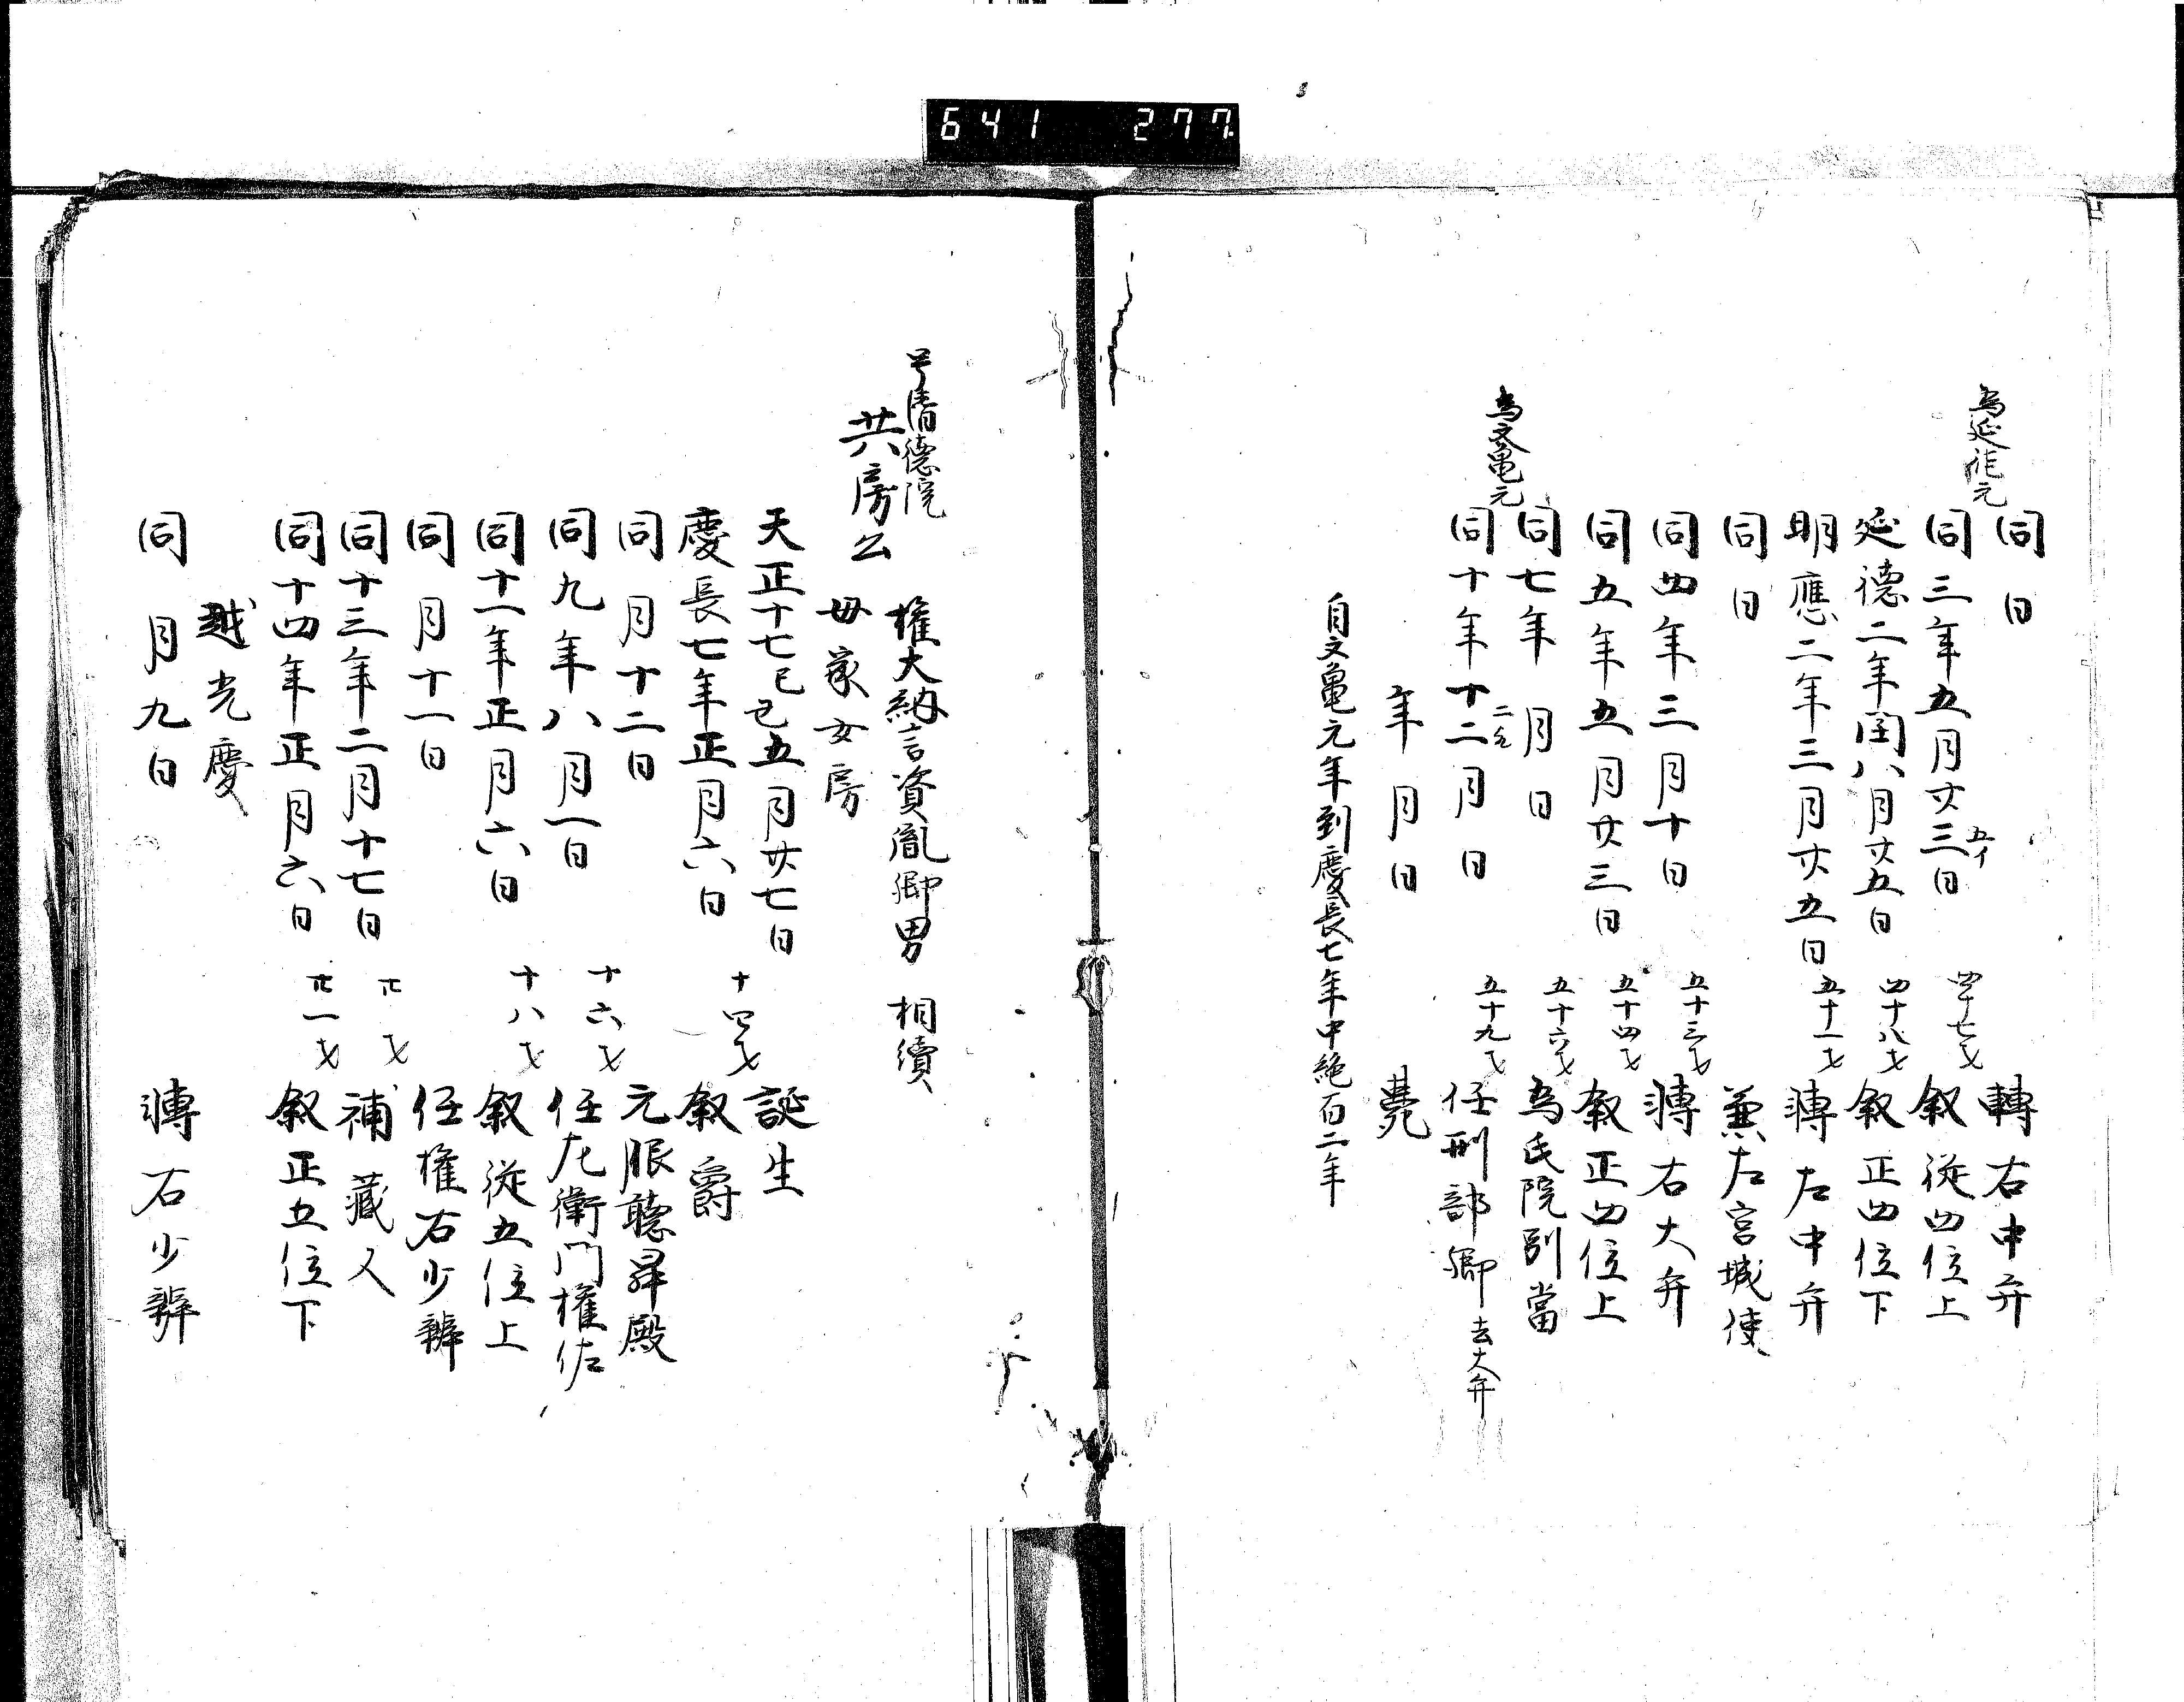 641 277
同日 轉右中弁
為延徳元
同三年五月廿三日 四十七才 叙従四位上
五イ
延徳二年閏八月廿五日 四十八才 叙正四位下
明應二年三月廿五日 五十一才 轉左中弁
同日 兼左宮城使
同四年三月十日 五十三才 轉右大弁
同五年五月廿三日 五十四才 叙正四位上
同七年 月 日 五十六才 為氏院別當
為文亀元
同十年十二月 日 五十九才 任刑部卿 去大弁
年 月 日 薨
自文亀元年到慶長七年中絶百二年
号清徳院
共房公 権大納言資胤卿男 相續
母家女房
天正十七己丑五月廿七日 誕生
慶長七年正月六日 十四才 叙爵
同月十二日 元服聴昇殿
同九年八月一日 十六才 任左衛門権佐
同十一年正月六日 十八才 叙従五位上
同月十一日 任権右少辨
同十三年二月十七日 廿才 補蔵人
同十四年正月六日 廿一才 叙正五位下
越光慶
同月九日 轉右少辨